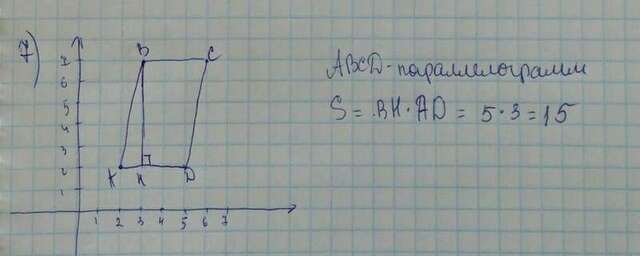 7)
B C
7
6
5
4
3
2
1
A H D
1 2 3 4 5 6 7
ABCD-параллелограмм
S = BH·AD = 5·3=15